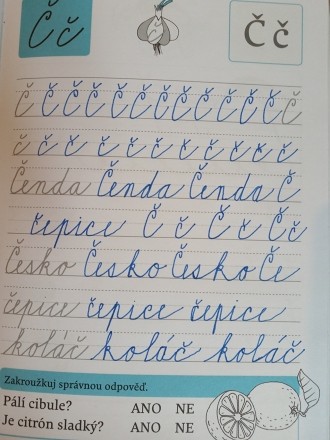 Č č Č č
Č Č Č Č Č Č Č Č Č Č Č Č Č
č č č č č č č č č č č č
Čenda Čenda Čenda Č
čepice Č č Č č Č č
Česko Česko Česko Če
čepice čepice čepice
koláč koláč koláč
Zakroužkuj správnou odpověď.
Pálí cibule? ANO NE
Je citrón sladký? ANO NE